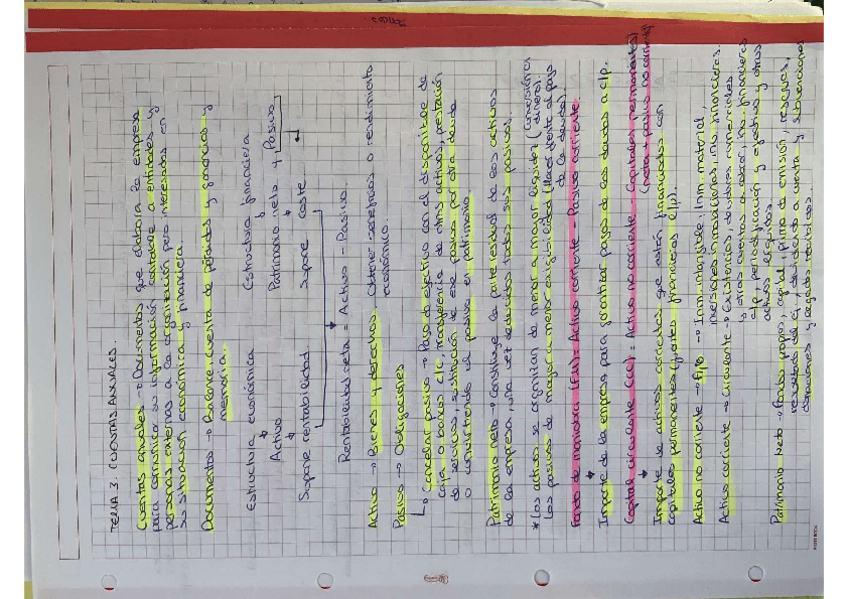 TEMA 3. CUENTAS ANUALES.
Cuentas anuales → Documentos que elabora la empresa
para comunicar su información contable a entidades y
personas externas a la organización pero interesadas en
su situación económica y financiera.
Documentos → Balance, cuenta de pérdidas y ganancias y
memoria.
Estructura económica Estructura financiera
Activo Patrimonio neto y Pasivo
Supone rentabilidad Supone coste
Rentabilidad neta = Activo - Pasivo.
Activo → Bienes y derechos. Obtener beneficios o rendimiento
económico.
Pasivo → Obligaciones
Cancelar pasivo → Pago de efectivo con el disponible de
caja o bancos c/c, transferencia de otros activos, prestación
de servicios, sustitución de ese pasivo por otra deuda
o convirtiendo el pasivo en patrimonio.
Patrimonio Neto → Constituye la parte residual de los activos
de la empresa, una vez deducidos todos sus pasivos.
* Los activos se organizan de menor a mayor liquidez (conversión en dinero).
Los pasivos de mayor a menor exigibilidad (hacer frente al pago
de la deuda).
Fondo de maniobra (FM) = Activo corriente - Pasivo corriente.
Importe de la empresa para garantizar pagos de las deudas a c/p.
Capital circulante (CC) = Activo no corriente - Capitales permanentes)
(neto + pasivo no corriente)
Importe de activos corrientes que están financiados con
capitales permanentes (fuentes financieras l/p).
Activo no corriente → Fijo → Inm. intangible, Inm. material,
inversiones inmobiliarias, inv. financieras.
Activo corriente → Circulante → Existencias, deudores comerciales
y otras cuentas a cobrar, inv. financieras
c/p, periodificación y efectivo y otros
activos líquidos.
Patrimonio Neto → Fondos propios, capital, prima de emisión, reservas,
resultado del ej, dividendo a cuenta y subvenciones
donaciones y legados recibidos.